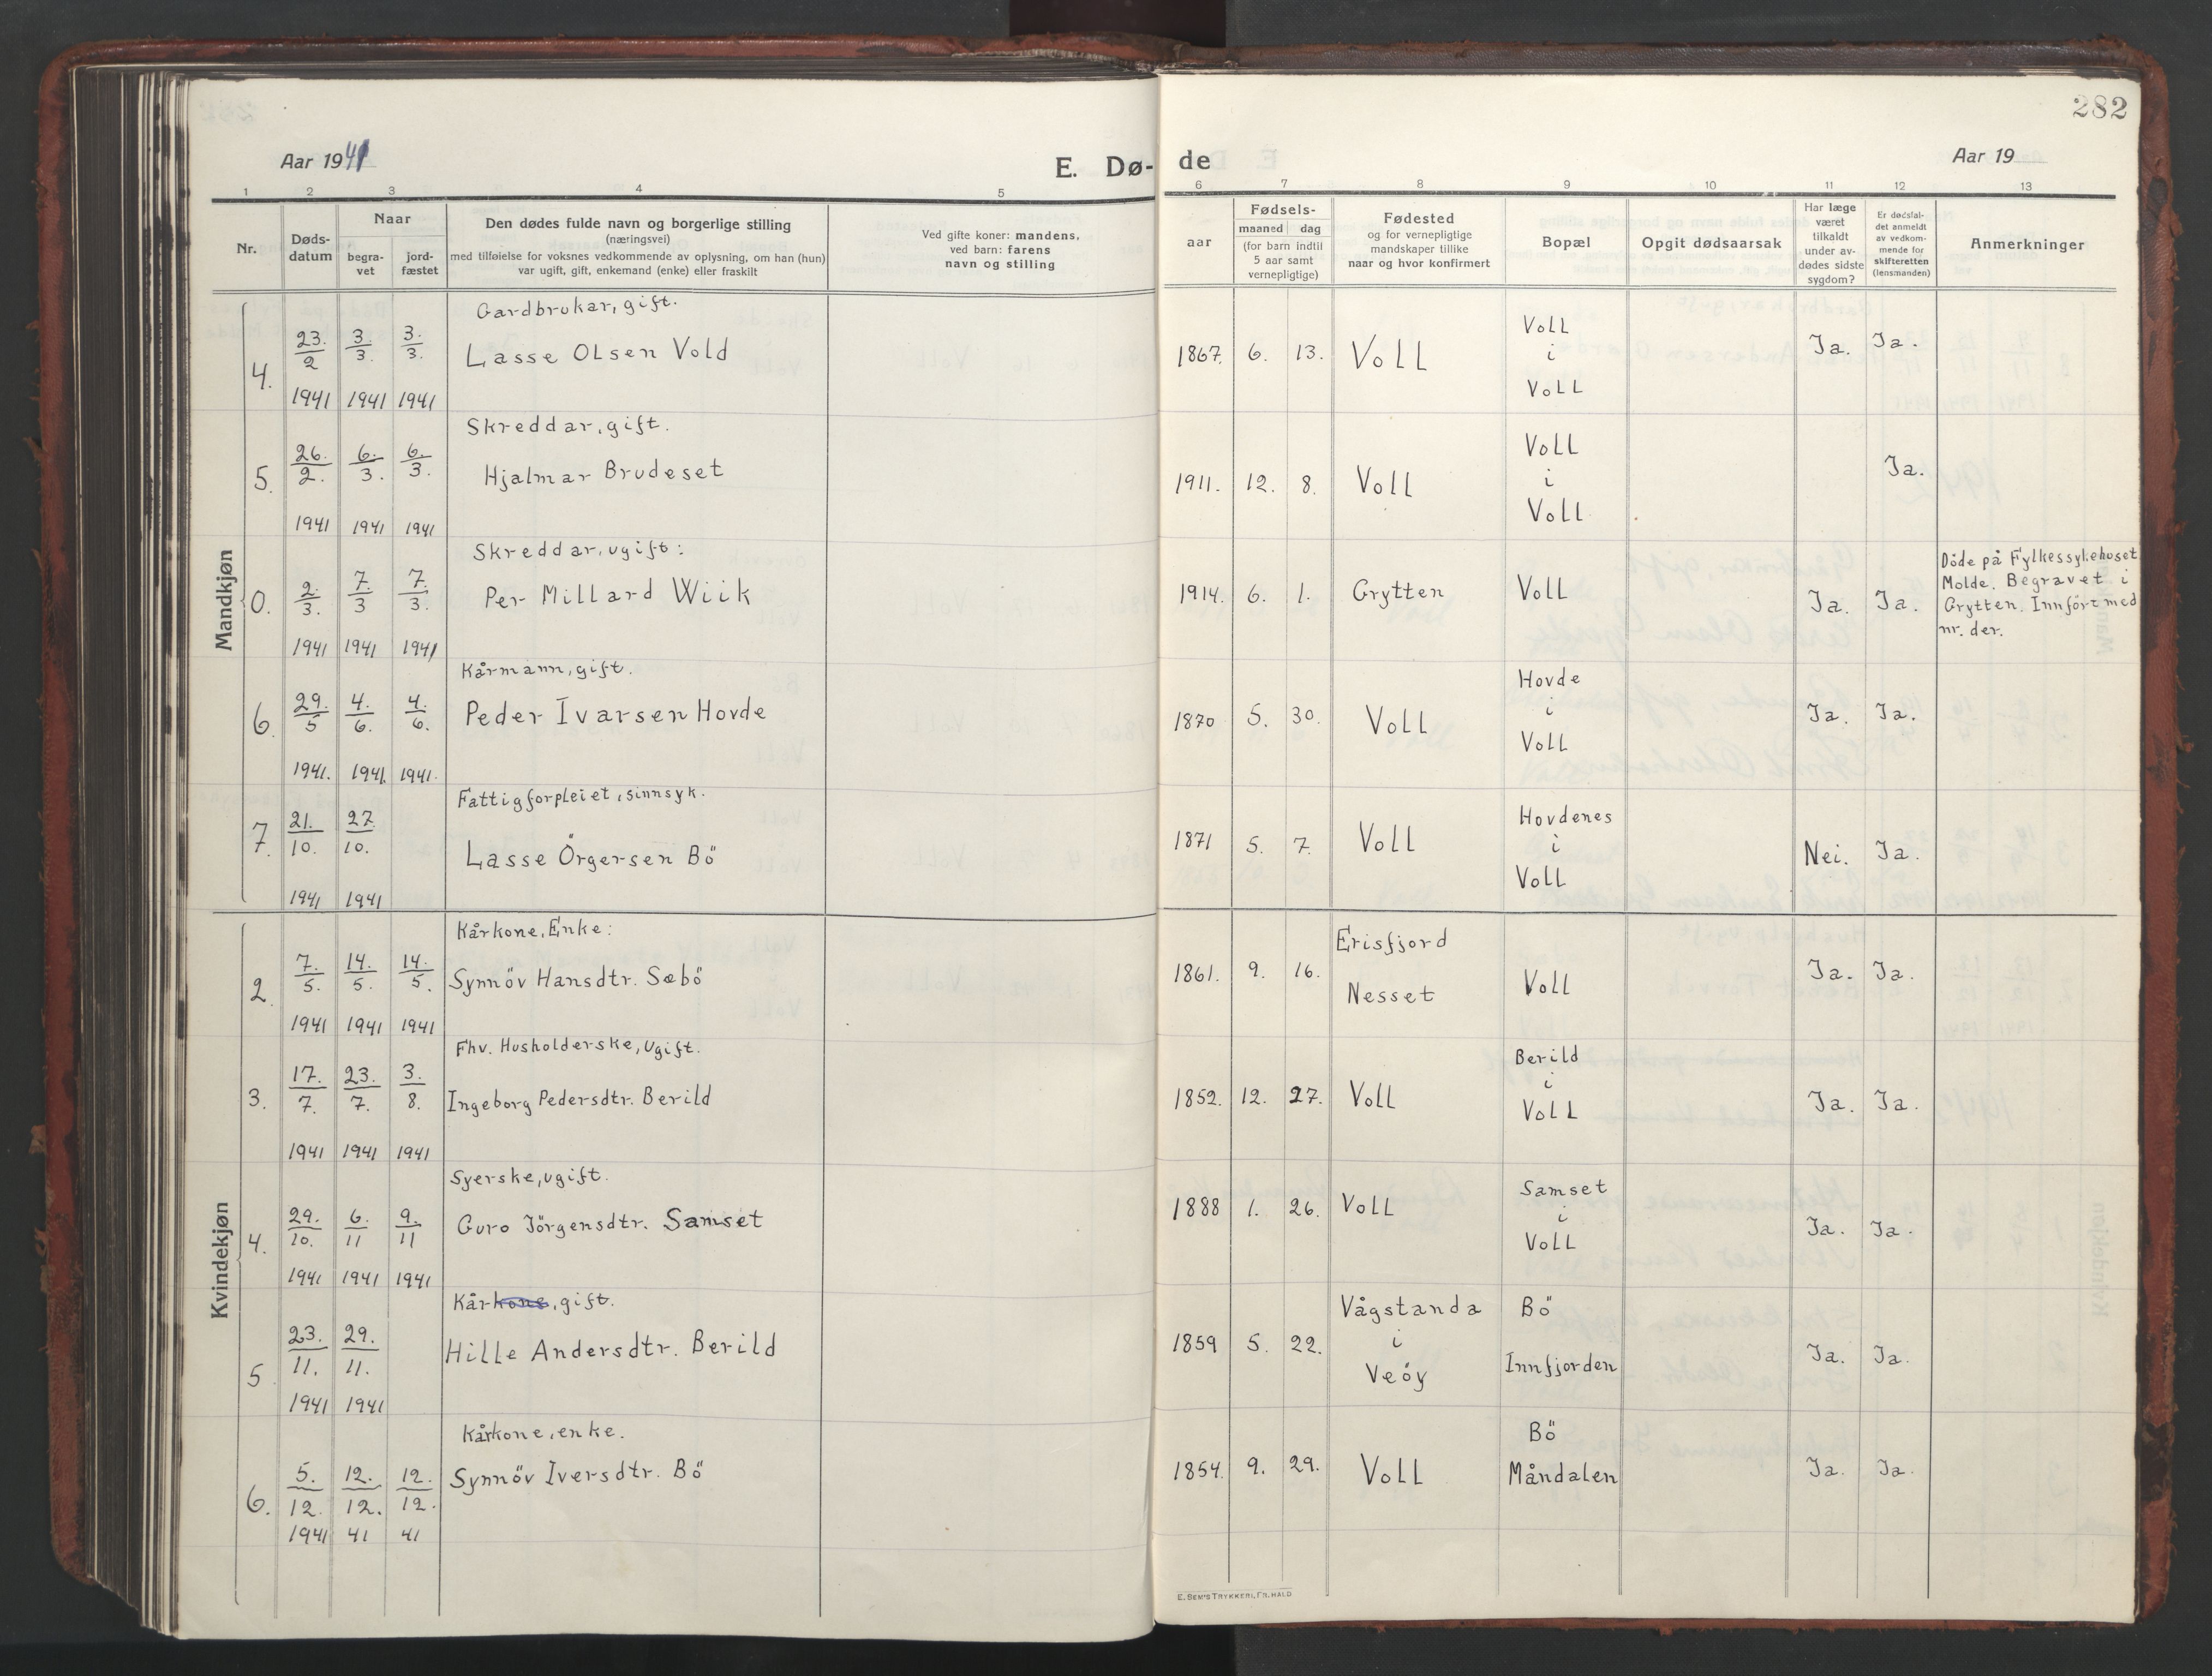 282
Aar 1941
E. Dø-
de
Aar 19
1 2 3 4 5 6 7 8 9 10 11 12 13
Nr.
Døds-
datum
Naar
begra-
vet
jord-
fæstet
Den dødes fulde navn og borgerlige stilling
(næringsvei)
med tilføielse for voksnes vedkommende av oplysning, om han (hun)
var ugift, gift, enkemand (enke) eller fraskilt
Ved gifte koner: mandens,
ved barn: farens
navn og stilling
Fødsels-
aar
maaned dag
(for barn indtil
5 aar samt
vernepligtige)
Fødested
og for vernepligtige
mandskaper tillike
naar og hvor konfirmert
Bopæl
Opgit dødsaarsak
Har læge
været
tilkaldt
under av-
dødes sidste
sygdom?
Er dødsfal-
det anmeldt
av vedkom-
mende for
skifteretten
(lensmanden)
Anmerkninger
Mandkjøn
Gardbrukar, gift. Voll
4. 23./2 3./3. 3./3. Lasse Olsen Vold 1867. 6. 13. Voll i Ja. Ja.
1941 1941 1941 Voll
Skreddar, gift. Voll
5. 26./2. 6./3. 6./3. Hjalmar Brudeset 1911. 12. 8. Voll i Ja.
1941 1941 1941 Voll
Skreddar, ugift:
0. 2./3. 7./3 7./3. Per Millard Wiik 1914. 6. 1. Grytten Voll Ja. Ja.
1941 1941 1941
Döde på Fylkessykehuset
Molde. Begravet i
Grytten. Innfört med
nr. der.
Kårmann, gift. Hovde
6. 29./5 4./6. 4./6. Peder Ivarsen Hovde 1870 5. 30. Voll i Ja. Ja.
1941. 1941. 1941. Voll
Fattigforpleiet, sinnsyk. Hovdenes
7. 21./10. 27./10. Lasse Örgersen Bö 1871 5. 7. Voll i Nei. Ja.
1941 1941 Voll
Kvindekjøn
Kårkone, Enke: Erisfjord
2. 7./5. 14./5. 14./5. Synnöv Hansdtr. Sæbö 1861. 9. 16. Nesset Voll Ja. Ja.
1941 1941 1941
Fhv. Husholderske, Ugift. Berild
3. 17./7. 23./7. 3./8. Ingeborg Pedersdtr. Berild 1852. 12. 27. Voll i Ja. Ja.
1941 1941 1941 Voll
Syerske, ugift. Samset
4. 29./10. 6./11 9./11 Guro Jörgensdtr. Samset 1888 1. 26. Voll i Ja. Ja.
1941 1941 1941 Voll
Kårkone, gift. Vågstanda Bö
5 23./11. 29./11. Hille Andersdtr. Berild 1859 5. 22. i Innfjorden Ja. Ja.
1941 1941 Veöy
Kårkone, enke. Bö
6. 5./12. 12./12. 12./12. Synnöv Iversdtr. Bö 1854. 9. 29. Voll Måndalen Ja. Ja.
1941 41 41
E. SEM'S TRYKKERI, FR. HALD